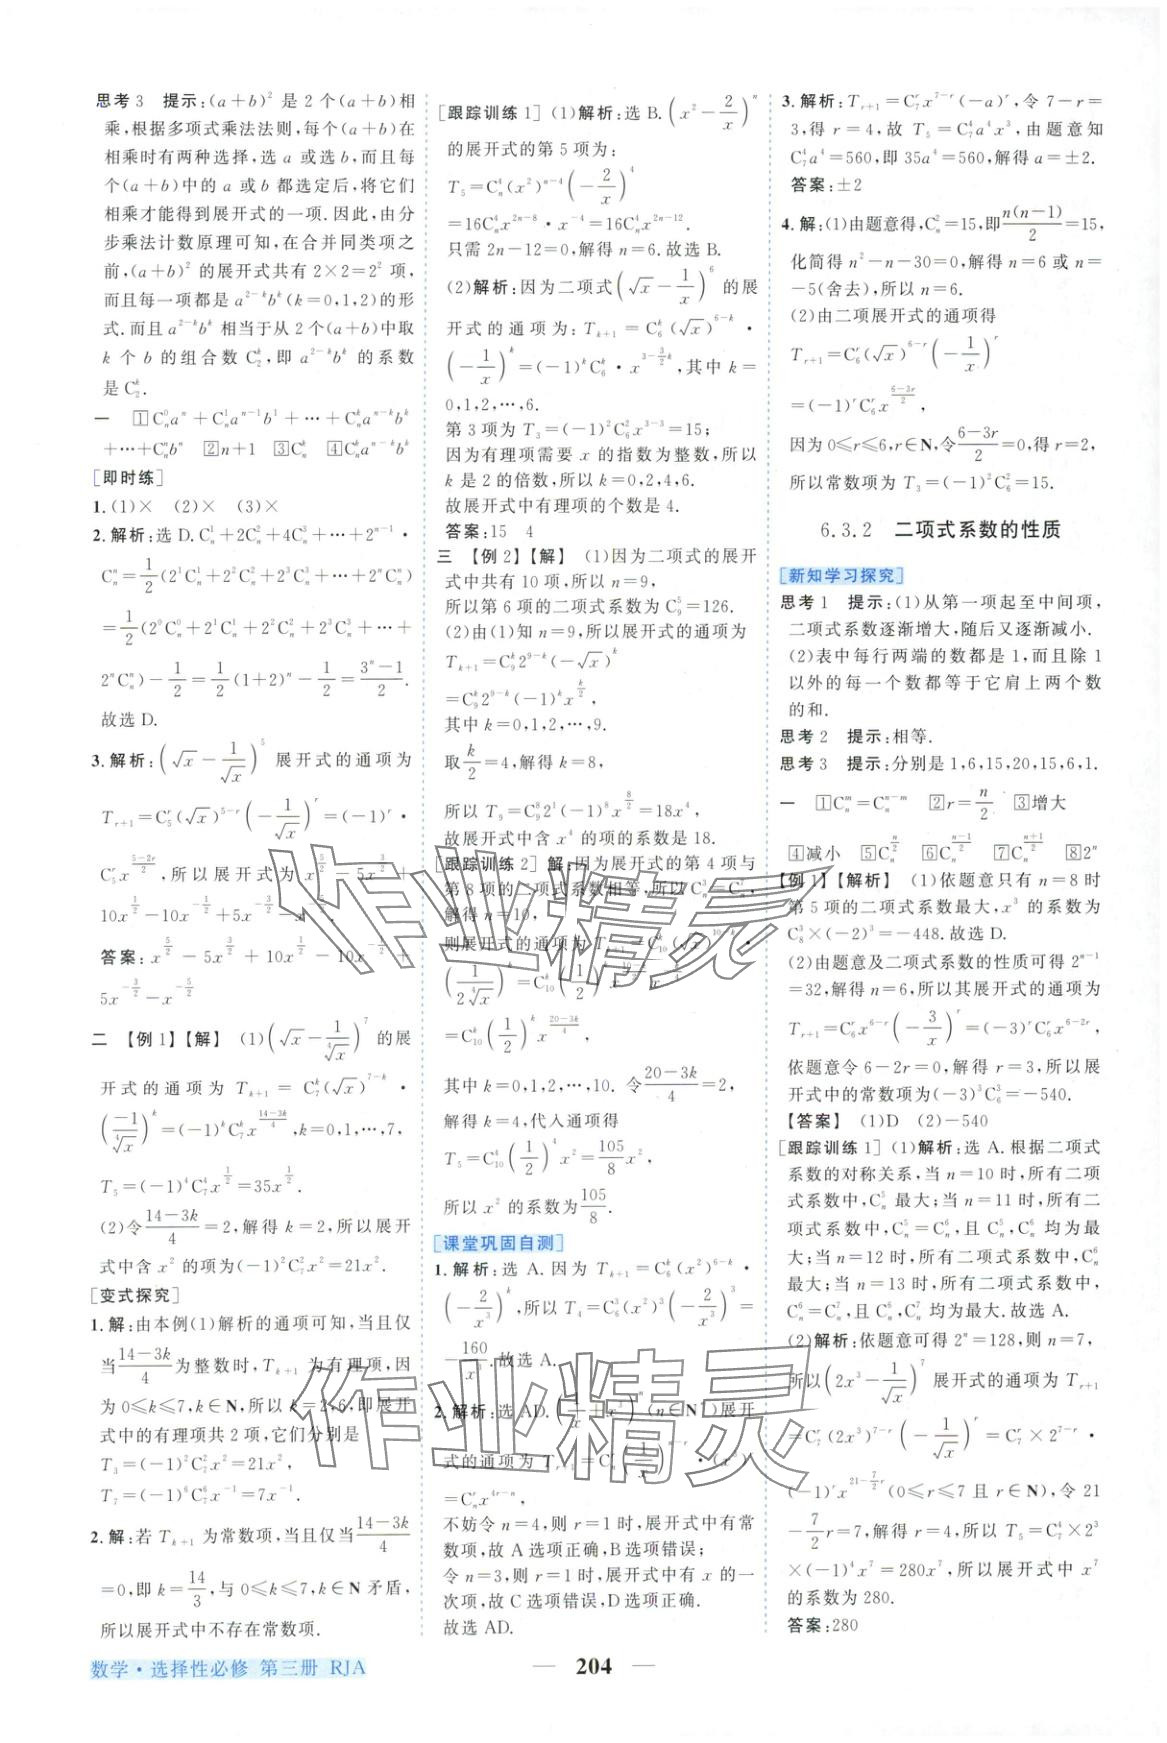 思考3 提示:(a+b)² 是 2 个(a+b)相
乘,根据多项式乘法法则,每个(a+b)在
相乘时有两种选择,选 a 或选 b,而且每
个(a+b)中的 a 或 b 都选定后,将它们
相乘才能得到展开式的一项.因此,由分
步乘法计数原理可知,在合并同类项之
前,(a+b)² 的展开式共有 2×2=2² 项,
而且每一项都是 a^{2-k}b^k(k=0,1,2)的形
式.而且 a^{2-k}b^k 相当于从 2 个(a+b)中取
k 个 b 的组合数 C_2^k,即 a^{2-k}b^k 的系数
是 C_2^k.
一 ①C_n^0a^n+C_n^1a^{n-1}b^1+…+C_n^ka^{n-k}b^k
+…+C_n^nb^n ②n+1 ③C_n^k ④C_n^ka^{n-k}b^k
[即时练]
1.(1)× (2)× (3)×
2.解析:选 D.C_n^1+2C_n^2+4C_n^3+…+2^{n-1}·
C_n^n=\frac{1}{2}(2^1C_n^1+2^2C_n^2+2^3C_n^3+…+2^nC_n^n)
=\frac{1}{2}(2^0C_n^0+2^1C_n^1+2^2C_n^2+2^3C_n^3+…+
2^nC_n^n)-\frac{1}{2}=\frac{1}{2}(1+2)^n-\frac{1}{2}=\frac{3^n-1}{2}.
故选 D.
3.解析:(√x-\frac{1}{√x})^5 展开式的通项为
T_{r+1}=C_5^r(√x)^{5-r}(-\frac{1}{√x})^r=(-1)^r·
C_5^rx^{\frac{5-2r}{2}},所以展开式为 x^{\frac{5}{2}}-5x^{\frac{3}{2}}+
10x^{\frac{1}{2}}-10x^{-\frac{1}{2}}+5x^{-\frac{3}{2}}-x^{-\frac{5}{2}}.
答案:x^{\frac{5}{2}}-5x^{\frac{3}{2}}+10x^{\frac{1}{2}}-10x^{-\frac{1}{2}}+
5x^{-\frac{3}{2}}-x^{-\frac{5}{2}}
二 【例1】【解】 (1)(√x-\frac{1}{\sqrt[4]{x}})^7 的展
开式的通项为 T_{k+1}=C_7^k(√x)^{7-k}·
(\frac{-1}{\sqrt[4]{x}})^k=(-1)^kC_7^kx^{\frac{14-3k}{4}},k=0,1,…,7,
T_5=(-1)^4C_7^4x^{\frac{1}{2}}=35x^{\frac{1}{2}}.
(2)令\frac{14-3k}{4}=2,解得 k=2,所以展开
式中含 x² 的项为(-1)²C_7^2x²=21x².
[变式探究]
1.解:由本例(1)解析的通项可知,当且仅
当\frac{14-3k}{4}为整数时,T_{k+1} 为有理项,因
为 0≤k≤7,k∈N,所以 k=2,6,即展开
式中的有理项共 2 项,它们分别是
T_3=(-1)²C_7^2x²=21x²,
T_7=(-1)^6C_7^6x^{-1}=7x^{-1}.
2.解:若 T_{k+1} 为常数项,当且仅当\frac{14-3k}{4}
=0,即 k=\frac{14}{3},与 0≤k≤7,k∈N 矛盾,
所以展开式中不存在常数项.
[跟踪训练1] (1)解析:选 B.(x²-\frac{2}{x})^n
的展开式的第 5 项为:
T_5=C_n^4(x²)^{n-4}(-\frac{2}{x})^4
=16C_n^4x^{2n-8}·x^{-4}=16C_n^4x^{2n-12}.
只需 2n-12=0,解得 n=6.故选 B.
(2)解析:因为二项式(√x-\frac{1}{x})^6 的展
开式的通项为:T_{k+1}=C_6^k(√x)^{6-k}·
(-\frac{1}{x})^k=(-1)^kC_6^k·x^{3-\frac{3}{2}k},其中 k=
0,1,2,…,6.
第 3 项为 T_3=(-1)²C_6^2x^{3-3}=15;
因为有理项需要 x 的指数为整数,所以
k 是 2 的倍数,所以 k=0,2,4,6.
故展开式中有理项的个数是 4.
答案:15 4
三 【例2】【解】 (1)因为二项式的展开
式中共有 10 项,所以 n=9,
所以第 6 项的二项式系数为 C_9^5=126.
(2)由(1)知 n=9,所以展开式的通项为
T_{k+1}=C_9^k2^{9-k}(-√x)^k
=C_9^k2^{9-k}(-1)^kx^{\frac{k}{2}},
其中 k=0,1,2,…,9.
取\frac{k}{2}=4,解得 k=8,
所以 T_9=C_9^82^1(-1)^8x^{\frac{8}{2}}=18x^4,
故展开式中含 x^4 的项的系数是 18.
[跟踪训练2] 解:因为展开式的第 4 项与
第 8 项的二项式系数相等,所以 C_n^3=C_n^7,
解得 n=10,
则展开式的通项为 T_{k+1}=C_{10}^k(√x)^{10-k}·
(\frac{1}{2\sqrt[4]{x}})^k=C_{10}^k(\frac{1}{2})^kx^{\frac{10-k}{2}-\frac{k}{4}}
=C_{10}^k(\frac{1}{2})^kx^{\frac{20-3k}{4}},
其中 k=0,1,2,…,10. 令\frac{20-3k}{4}=2,
解得 k=4,代入通项得
T_5=C_{10}^4(\frac{1}{2})^4x²=\frac{105}{8}x²,
所以 x² 的系数为\frac{105}{8}.
[课堂巩固自测]
1.解析:选 A.因为 T_{k+1}=C_6^k(x²)^{6-k}·
(-\frac{2}{x³})^k,所以 T_4=C_6^3(x²)³(-\frac{2}{x³})³=
-\frac{160}{x³}.故选 A.
2.解析:选 AD.(\frac{1}{x}+x³)^n(n∈N*)展开
式的通项为 T_{r+1}=C_n^r(\frac{1}{x})^{n-r}·(x³)^r
=C_n^rx^{4r-n},
不妨令 n=4,则 r=1 时,展开式中有常
数项,故 A 选项正确,B 选项错误;
令 n=3,则 r=1 时,展开式中有 x 的一
次项,故 C 选项错误,D 选项正确.
故选 AD.
3.解析:T_{r+1}=C_7^rx^{7-r}(-a)^r,令 7-r=
3,得 r=4,故 T_5=C_7^4a^4x³,由题意知
C_7^4a^4=560,即 35a^4=560,解得 a=±2.
答案:±2
4.解:(1)由题意得,C_n^2=15,即\frac{n(n-1)}{2}=15,
化简得 n²-n-30=0,解得 n=6 或 n=
-5(舍去),所以 n=6.
(2)由二项展开式的通项得
T_{r+1}=C_6^r(√x)^{6-r}(-\frac{1}{x})^r
=(-1)^rC_6^rx^{\frac{6-3r}{2}},
因为 0≤r≤6,r∈N,令\frac{6-3r}{2}=0,得 r=2,
所以常数项为 T_3=(-1)²C_6^2=15.
6.3.2 二项式系数的性质
[新知学习探究]
思考1 提示:(1)从第一项起至中间项,
二项式系数逐渐增大,随后又逐渐减小.
(2)表中每行两端的数都是 1,而且除 1
以外的每一个数都等于它肩上两个数
的和.
思考2 提示:相等.
思考3 提示:分别是 1,6,15,20,15,6,1.
一 ①C_n^m=C_n^{n-m} ②r=\frac{n}{2} ③增大
④减小 ⑤C_n^{\frac{n}{2}} ⑥C_n^{\frac{n-1}{2}} ⑦C_n^{\frac{n+1}{2}} ⑧2^n
【例1】【解析】 (1)依题意只有 n=8 时
第 5 项的二项式系数最大,x³ 的系数为
C_8^3×(-2)³=-448.故选 D.
(2)由题意及二项式系数的性质可得 2^{n-1}
=32,解得 n=6,所以其展开式的通项为
T_{r+1}=C_6^rx^{6-r}(-\frac{3}{x})^r=(-3)^rC_6^rx^{6-2r},
依题意令 6-2r=0,解得 r=3,所以展
开式中的常数项为(-3)³C_6^3=-540.
【答案】 (1)D (2)-540
[跟踪训练1] (1)解析:选 A.根据二项式
系数的对称关系,当 n=10 时,所有二项
式系数中,C_n^5 最大;当 n=11 时,所有二
项式系数中,C_n^5=C_n^6,且 C_n^5,C_n^6 均为最
大;当 n=12 时,所有二项式系数中,C_n^6
最大;当 n=13 时,所有二项式系数中,
C_n^6=C_n^7,且 C_n^6,C_n^7 均为最大.故选 A.
(2)解析:依题意可得 2^n=128,则 n=7,
所以(2x³-\frac{1}{√x})^7 展开式的通项为 T_{r+1}
=C_7^r(2x³)^{7-r}(-\frac{1}{√x})^r=C_7^r×2^{7-r}×
(-1)^rx^{21-\frac{7}{2}r}(0≤r≤7 且 r∈N),令 21
-\frac{7}{2}r=7,解得 r=4,所以 T_5=C_7^4×2³
×(-1)^4x^7=280x^7,所以展开式中 x^7
的系数为 280.
答案:280
数学·选择性必修 第三册 RJA
— 204 —
作业精灵
作业精灵